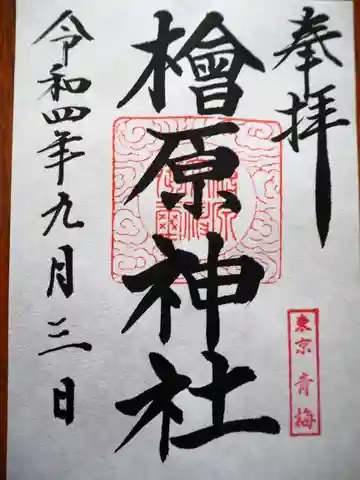 奉拝
檜原神社
東京 青梅
令和四年九月三日